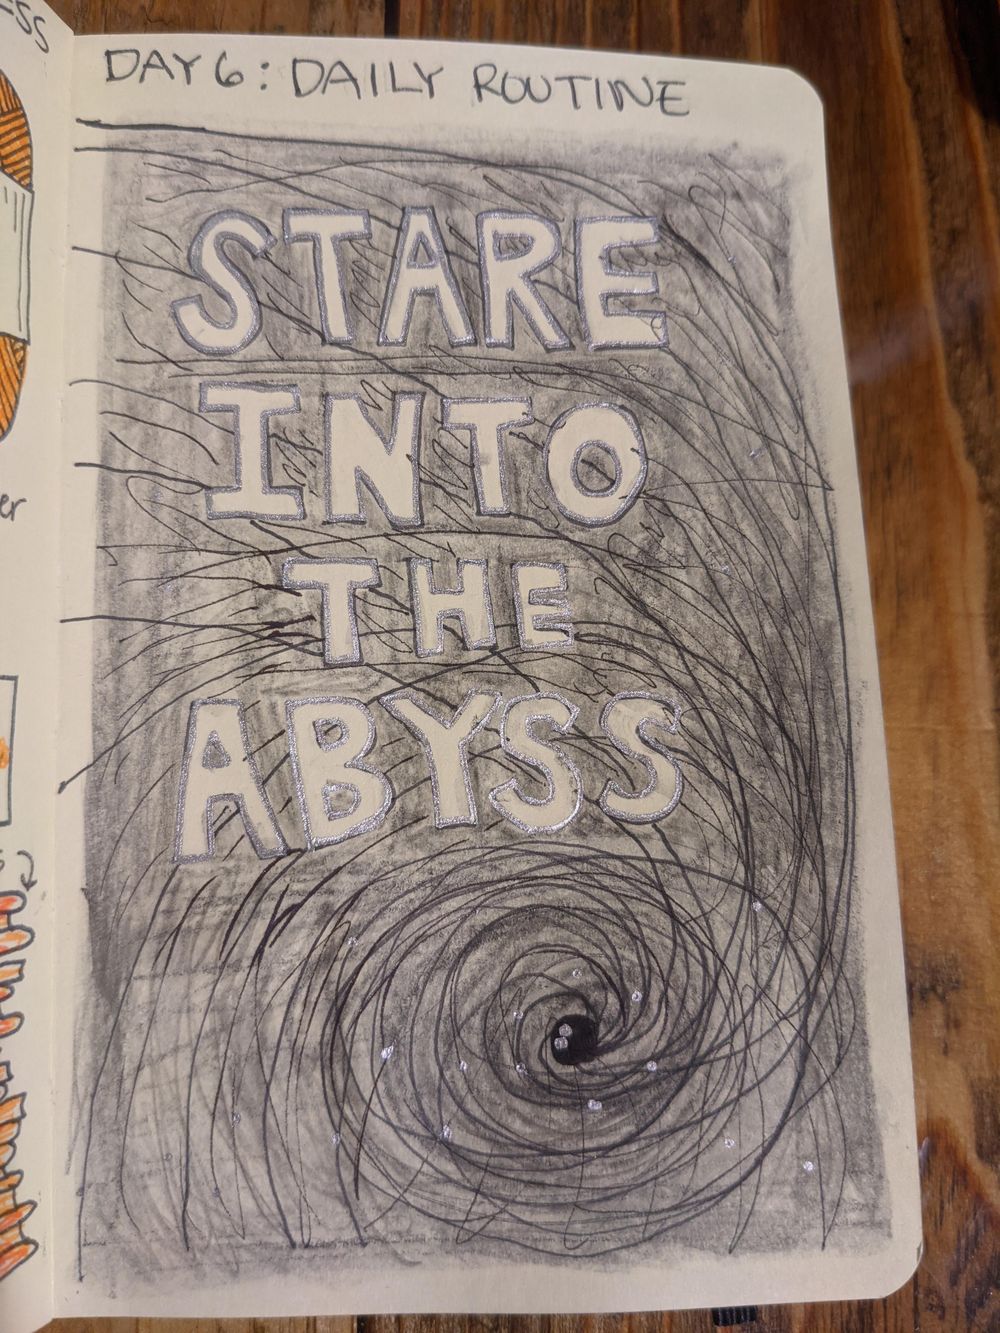 DAY 6: DAILY ROUTINE
STARE
INTO
THE
ABYSS